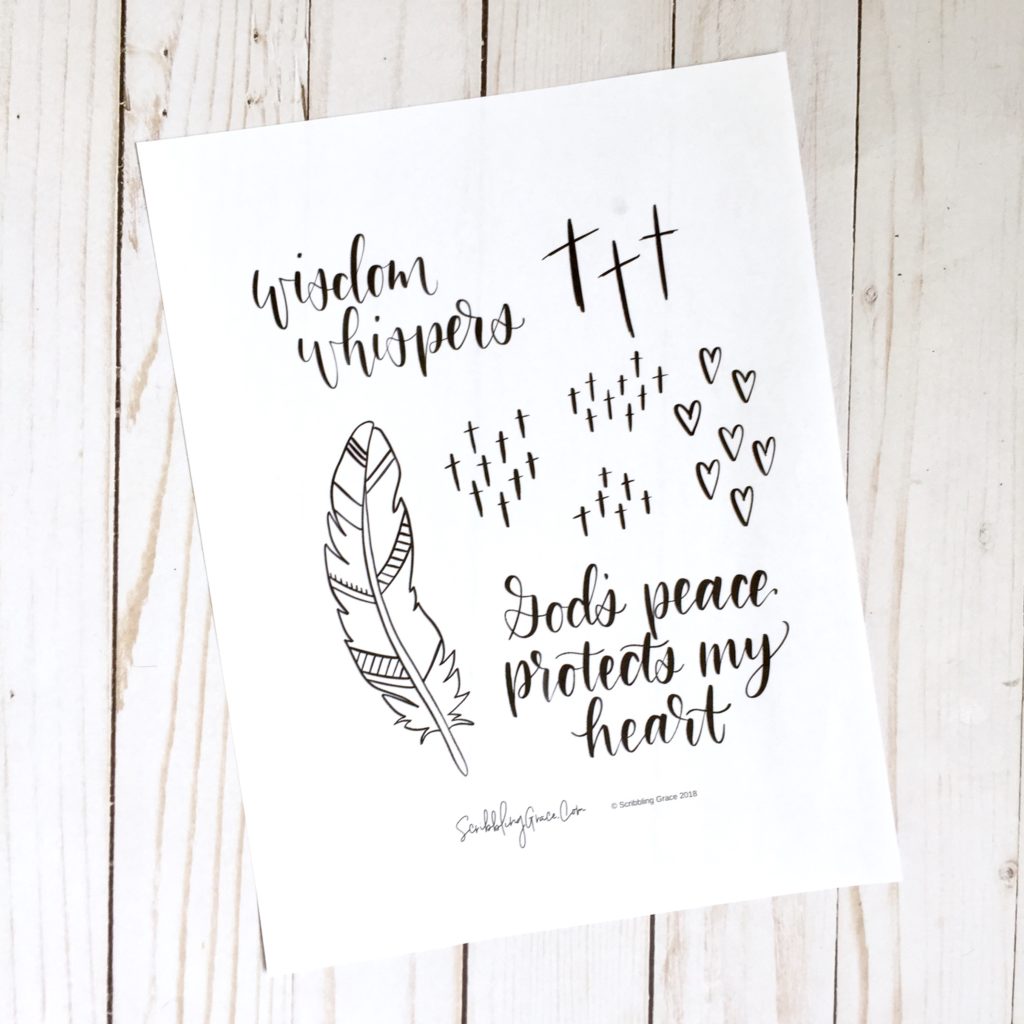 wisdom
whispers
God's peace
protects my
heart
ScribblingGrace.Com
© Scribbling Grace 2018